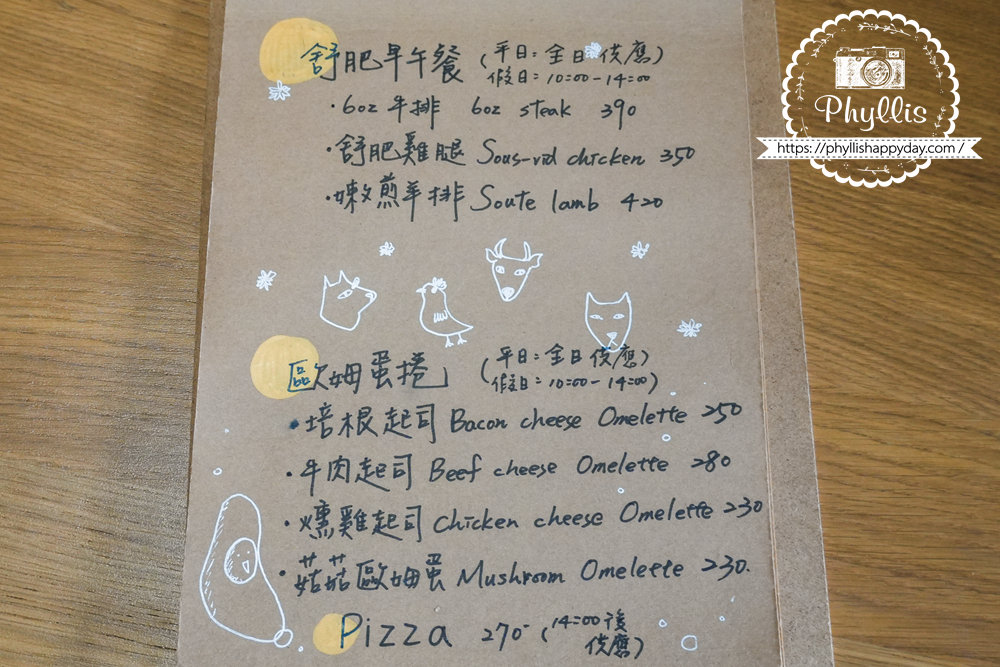 舒肥早午餐 (平日:全日供應)
假日:10:00-14:00
·6oz 牛排 6oz steak 390
·舒肥雞腿 Sous-vid chicken 350
·嫩煎羊排 Soute lamb 420
歐姆蛋捲 (平日:全日供應)
(假日:10:00-14:00)
·培根起司 Bacon cheese Omelette 250
·牛肉起司 Beef cheese Omelette 280
·燻雞起司 Chicken cheese Omelette 230
·菇菇歐姆蛋 Mushroom Omelette 230.
Pizza 270- (14:00後
供應)
Phyllis
https://phyllishappyday.com/